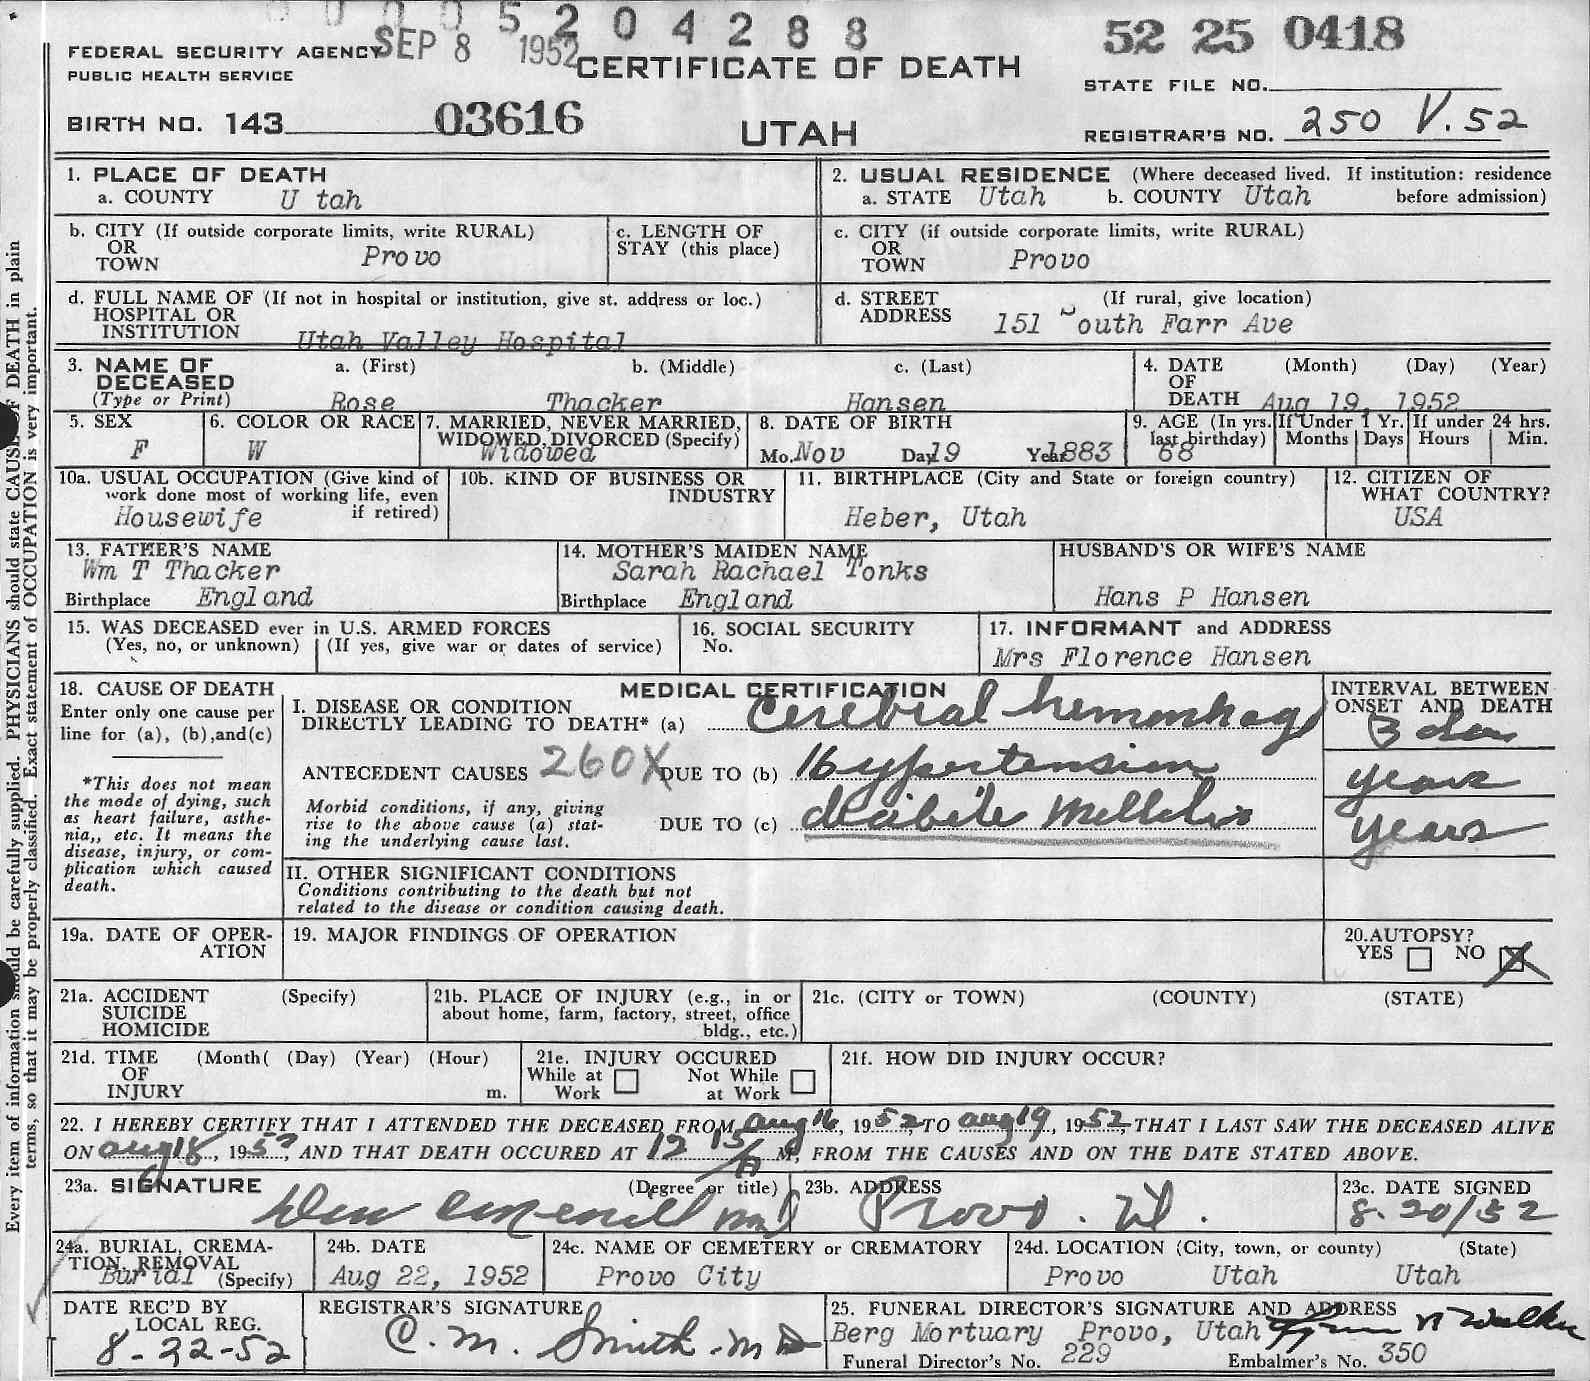 0 0 0 5 2 0 4 2 8 8
52 25 0418
FEDERAL SECURITY AGENCY SEP 8 1952
PUBLIC HEALTH SERVICE
CERTIFICATE OF DEATH
STATE FILE NO.
BIRTH NO. 143 03616
UTAH
REGISTRAR'S NO. 250 V.52
1. PLACE OF DEATH
a. COUNTY U tah
2. USUAL RESIDENCE (Where deceased lived. If institution: residence
a. STATE Utah b. COUNTY Utah before admission)
b. CITY (If outside corporate limits, write RURAL)
OR
TOWN Provo
c. LENGTH OF
STAY (this place)
c. CITY (if outside corporate limits, write RURAL)
OR
TOWN Provo
d. FULL NAME OF (If not in hospital or institution, give st. address or loc.)
HOSPITAL OR
INSTITUTION Utah Valley Hospital
d. STREET (If rural, give location)
ADDRESS 151 South Farr Ave
3. NAME OF a. (First) b. (Middle) c. (Last)
DECEASED
(Type or Print) Rose Thacker Hansen
4. DATE (Month) (Day) (Year)
OF
DEATH Aug 19, 1952
5. SEX
F
6. COLOR OR RACE
W
7. MARRIED, NEVER MARRIED,
WIDOWED, DIVORCED (Specify)
Widowed
8. DATE OF BIRTH
Mo. Nov Day 19 Year 1883
9. AGE (In yrs. If Under 1 Yr. If under 24 hrs.
last birthday) Months Days Hours Min.
68
10a. USUAL OCCUPATION (Give kind of
work done most of working life, even
if retired)
Housewife
10b. KIND OF BUSINESS OR
INDUSTRY
11. BIRTHPLACE (City and State or foreign country)
Heber, Utah
12. CITIZEN OF
WHAT COUNTRY?
USA
13. FATHER'S NAME
Wm T Thacker
Birthplace England
14. MOTHER'S MAIDEN NAME
Sarah Rachael Tonks
Birthplace England
HUSBAND'S OR WIFE'S NAME
Hans P Hansen
15. WAS DECEASED ever in U.S. ARMED FORCES
(Yes, no, or unknown) (If yes, give war or dates of service)
16. SOCIAL SECURITY
No.
17. INFORMANT and ADDRESS
Mrs Florence Hansen
18. CAUSE OF DEATH
Enter only one cause per
line for (a), (b),and(c)
*This does not mean
the mode of dying, such
as heart failure, asthe-
nia,, etc. It means the
disease, injury, or com-
plication which caused
death.
MEDICAL CERTIFICATION
I. DISEASE OR CONDITION
DIRECTLY LEADING TO DEATH* (a) Cerebral hemorrhage
ANTECEDENT CAUSES 260X DUE TO (b) Hypertension
Morbid conditions, if any, giving
rise to the above cause (a) stat-
ing the underlying cause last.
DUE TO (c) diabete Mellitus
INTERVAL BETWEEN
ONSET AND DEATH
3 days
years
years
II. OTHER SIGNIFICANT CONDITIONS
Conditions contributing to the death but not
related to the disease or condition causing death.
19a. DATE OF OPER-
ATION
19. MAJOR FINDINGS OF OPERATION
20.AUTOPSY?
YES NO X
21a. ACCIDENT (Specify)
SUICIDE
HOMICIDE
21b. PLACE OF INJURY (e.g., in or
about home, farm, factory, street, office
bldg., etc.)
21c. (CITY or TOWN) (COUNTY) (STATE)
21d. TIME (Month( (Day) (Year) (Hour)
OF
INJURY m.
21e. INJURY OCCURED
While at Not While
Work at Work
21f. HOW DID INJURY OCCUR?
22. I HEREBY CERTIFY THAT I ATTENDED THE DECEASED FROM Aug 16, 1952, TO Aug 19, 1952, THAT I LAST SAW THE DECEASED ALIVE
ON Aug 18, 1952, AND THAT DEATH OCCURED AT 12 15/A M, FROM THE CAUSES AND ON THE DATE STATED ABOVE.
23a. SIGNATURE (Degree or title)
MD
23b. ADDRESS
Provo. Ut.
23c. DATE SIGNED
8-20/52
24a. BURIAL, CREMA-
TION, REMOVAL
Burial (Specify)
24b. DATE
Aug 22, 1952
24c. NAME OF CEMETERY or CREMATORY
Provo City
24d. LOCATION (City, town, or county) (State)
Provo Utah Utah
DATE REC'D BY
LOCAL REG.
8-22-52
REGISTRAR'S SIGNATURE
C. M. Smith. MD
25. FUNERAL DIRECTOR'S SIGNATURE AND ADDRESS
Berg Mortuary Provo, Utah Walker
Funeral Director's No. 229 Embalmer's No. 350
Every item of information should be carefully supplied. PHYSICIANS should state CAUSE OF DEATH in plain
terms, so that it may be properly classified. Exact statement of OCCUPATION is very important.